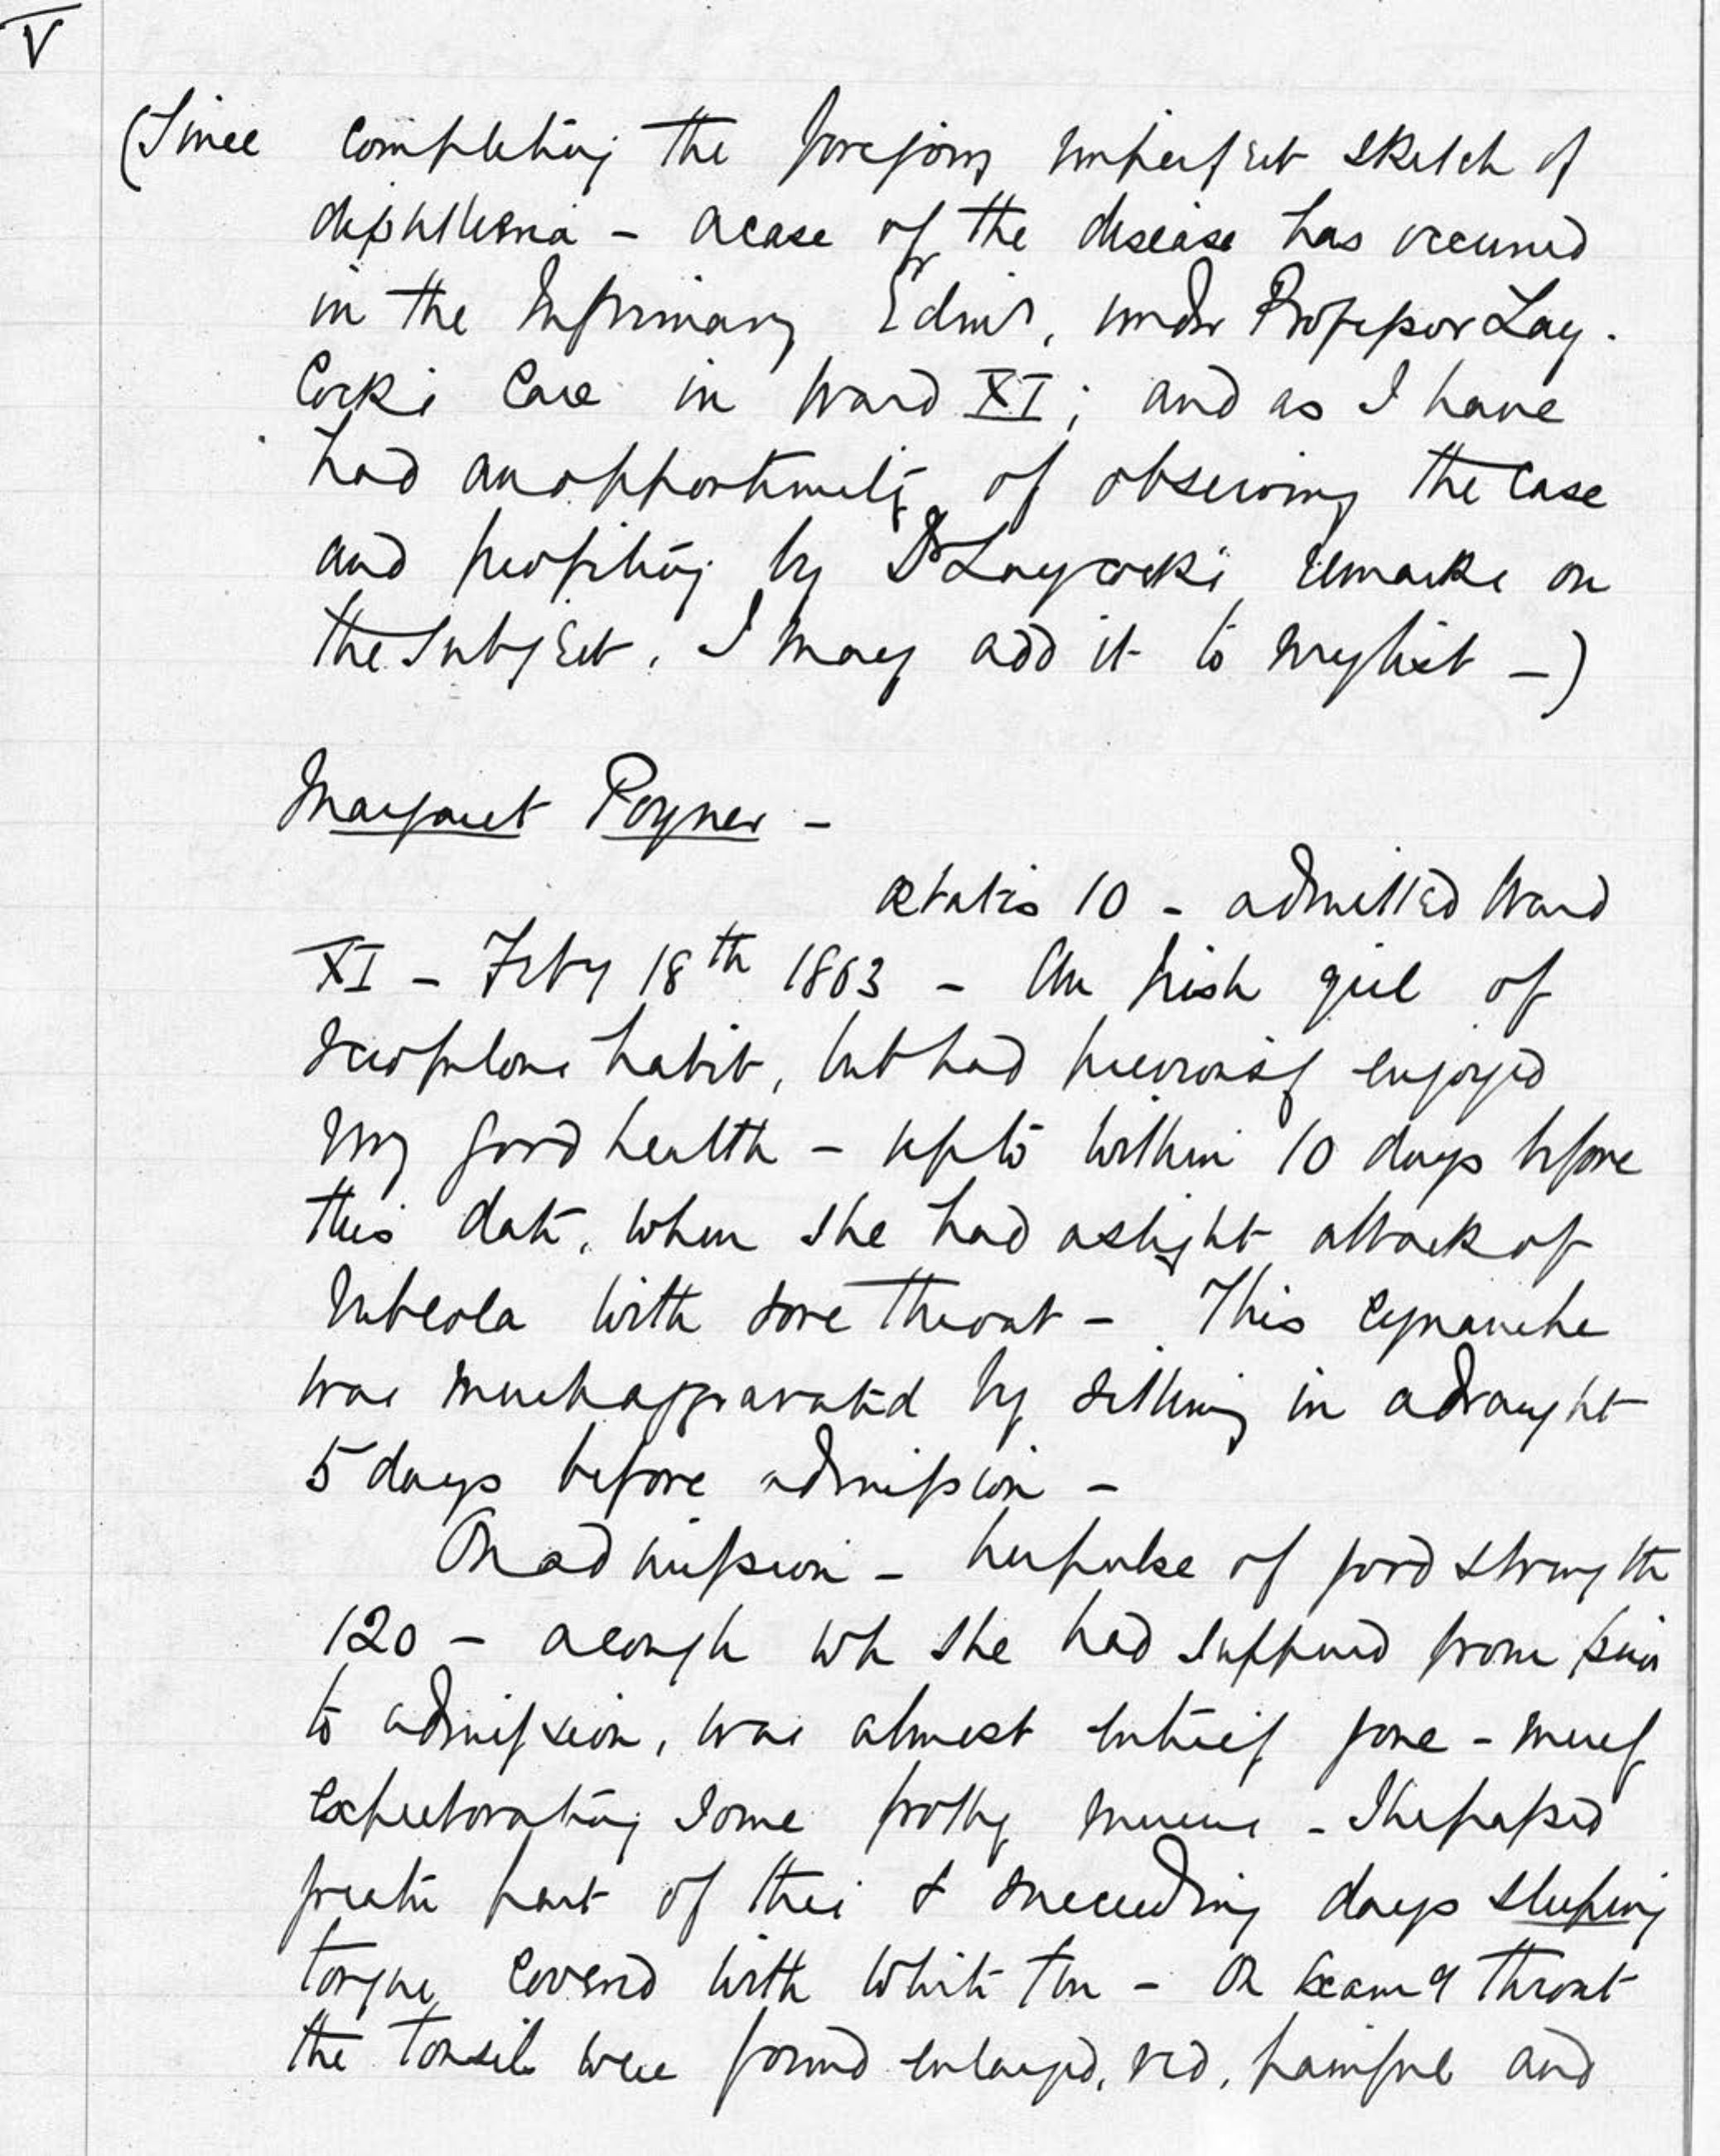 V
(Since completing the foregoing imperfect sketch of
diphtheria - a case of the disease has occurred
in the Infirmary Edinr, under Professor Lay-
cock's Care in Ward XI; and as I have
had an opportunity of observing the case
and profiting by Dr Laycock's remarks on
the subject, I may add it to my list -)
Margaret Poyner -
ætatis 10 - admitted Ward
XI - Feby 18th 1863 - An Irish girl of
scrofulous habit, but had previously enjoyed
very good health - up to within 10 days before
this date, when she had a slight attack of
Rubeola with sore throat - This cynanche
was much aggravated by sitting in a draught
5 days before admission -
On admission - her pulse of good strength
120 - a cough wh she had suffered from prior
to admission, was almost entirely gone - merely
expectorating some frothy mucus - She passed
greater part of this & succeeding days sleeping
tongue covered with white fur - On examn throat
the tonsils were found enlarged, red, painful and